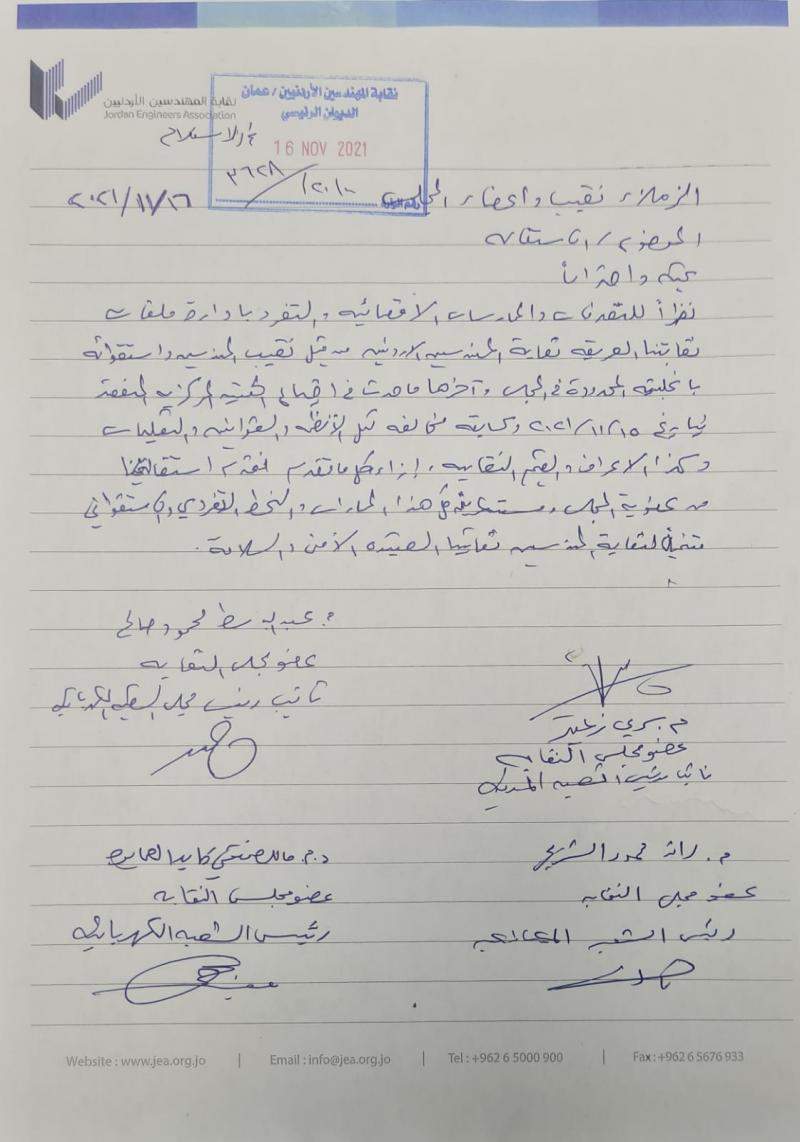 نقابة المهندسين الأردنيين
Jordan Engineers Association
نقابة المهندسين الأردنيين / عمان
الديوان الرئيسي
16 NOV 2021
٣٦٢٨
الزملاء نقيب واعضاء المجلس ٢٠٢١/١١/١٦
الموضوع / الاستقالة
تحية واحتراماً
نظراً للتعديات والممارسات الأقصائية والتفرد بادارة ملفات
نقابتنا العريقة نقابة المهندسين الاردنيين من قبل نقيب المهندسين واستقوائه
باغلبيته المحدودة في المجلس وآخرها ما حدث في اجتماع الهيئة المركزية المنعقد
بتاريخ ٢٠٢١/١١/١٥ وكذلك مخالفة كل الأنظمة والقوانين والتعليمات
وكذا الاعراف والقيم النقابية، إزاء كل ما تقدم نقدم استقالتنا
من عضوية المجلس هذا الممارسات والنمط التفردي والاستقوائي
متمنين لنقابة المهندسين نقابتنا العتيدة الأمن والسلامة.
م. عبد الباسط محمود صالح
عضو مجلس النقابة
نائب رئيس مجلس الشعبة الكهربائية
م. سري زعيتر
عضو مجلس النقابة
نائب رئيس الشعبة المدنية
م. رائد محمود الشربجي
عضو مجلس النقابة
رئيس الشعبة المعمارية
د.م. مالك
عضو مجلس النقابة
رئيس الشعبة الكهربائية
Website : www.jea.org.jo | Email : info@jea.org.jo | Tel : +962 6 5000 900 | Fax : +962 6 5676 933